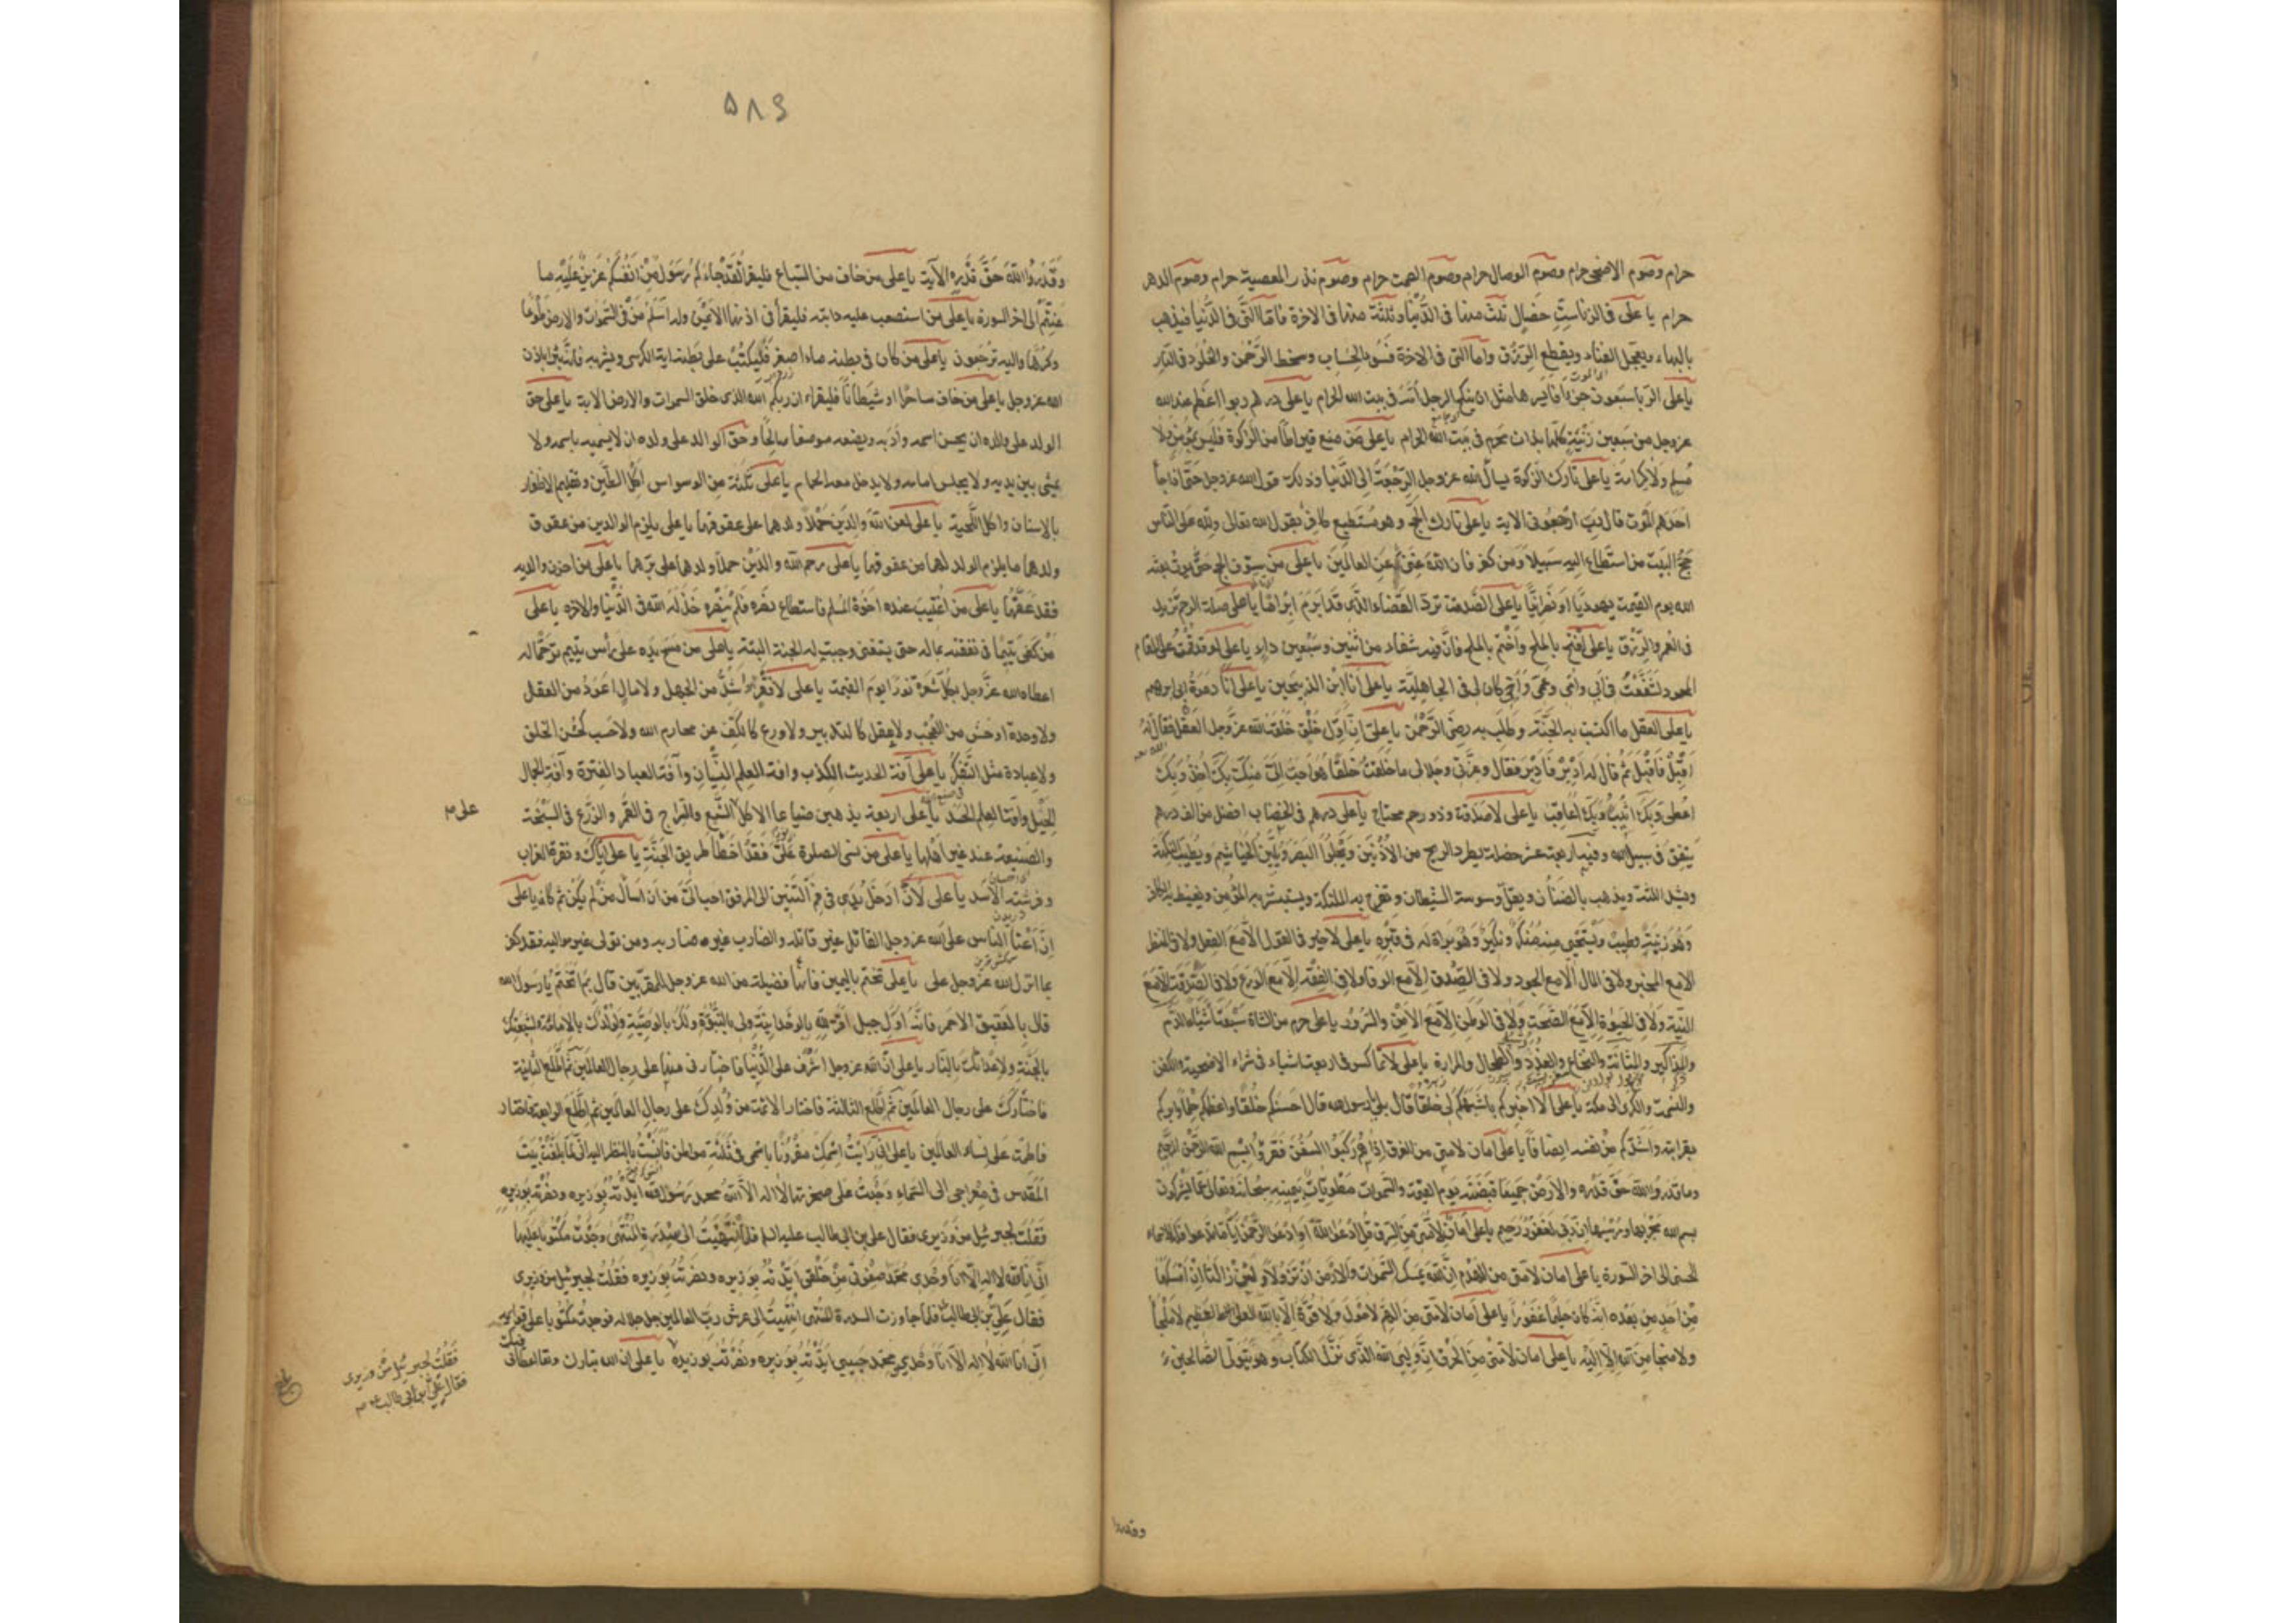 حرام وصوم الاضحى حرام وصوم الوصال حرام وصوم الصمت حرام وصوم نذر المعصية حرام وصوم الدهر
حرام يا على فى الزنا ست خصال ثلث منها فى الدنيا وثلثة منها فى الاخرة فاما التى فى الدنيا فيذهب
بالبهاء ويعجل الفناء ويقطع الرزق واما التى فى الاخرة فسوء الحساب وسخط الرحمن والخلود فى النار
يا على الربا سبعون جزءا فايسرها مثل ان ينكح الرجل امه فى بيت الله الحرام يا على درهم ربوا اعظم عند الله
عز وجل من سبعين زنية كلها بذات محرم فى بيت الله الحرام يا على من منع قيراطا من الزكوة فليس بمؤمن ولا
مسلم ولا كرامة يا على تارك الزكوة يسال الله عز وجل الرجعة الى الدنيا وذلك قول الله عز وجل حتى اذا جاء
احدهم الموت قال رب ارجعون الاية يا على تارك الحج وهو مستطيع كافر يقول الله تعالى ولله على الناس
حج البيت من استطاع اليه سبيلا ومن كفر فان الله غنى عن العالمين يا على من سوف الحج حتى يموت بعثه
الله يوم القيمة يهوديا او نصرانيا يا على الصدقة ترد القضاء الذى قد ابرم ابراما يا على صلة الرحم تزيد
فى العمر والرزق يا على افتتح بالملح واختم بالملح فان فيه شفاء من اثنين وسبعين داء يا على لو قد قمت على المقام
المحمود لشفعت فى ابى وامى وعمى واخ كان لى فى الجاهلية يا على انا ابن الذبيحين يا على انا دعوة ابى ابرهيم
يا على العقل ما اكتسب به الجنة وطلب به رضى الرحمن يا على ان اول خلق خلقه الله عز وجل العقل فقال له
اقبل فاقبل ثم قال له ادبر فادبر فقال وعزتى وجلالى ما خلقت خلقا هو احب الى منك بك اخذ وبك
اعطى وبك اثيب وبك اعاقب يا على لا صدقة وذو رحم محتاج يا على درهم فى الخضاب افضل من الف درهم
ينفق فى سبيل الله وفيه اربعة عشر خصلة يطرد الريح من الاذنين ويجلوا البصر ويلين الخياشيم ويطيب النكهة
ويشد اللثة ويذهب بالضنا ويقل وسوسة الشيطان وتفرح به الملئكة ويستبشر به المؤمن ويغيظ به الكافر
وهو زينة وطيب ويستحيى منه منكر ونكير وهو براة له فى قبره يا على لا خير فى القول الا مع الفعل ولا فى المنظر
الا مع المخبر ولا فى المال الا مع الجود ولا فى الصدق الا مع الوفا ولا فى الفقه الا مع الورع ولا فى الصدقة الا مع
النية ولا فى الحيوة الا مع الصحة ولا فى الوطن الا مع الامن والسرور يا على حرم من الشاة سبعة اشياء الدم
والمذاكير والمثانة والنخاع والغدد والطحال والمرارة يا على لا تماكس فى اربعة اشياء فى شراء الاضحية والكفن
والنسمة والكرى الى مكة يا على الا اخبركم باشبهكم بى خلقا قال بلى يا رسول الله قال احسنكم خلقا واعظمكم حلما وابركم
بقرابته واشدكم من نفسه انصافا يا على امان لامتى من الغرق اذا هم ركبوا السفن فقرؤا بسم الله الرحمن الرحيم
وما قدروا الله حق قدره والارض جميعا قبضته يوم القيمة والسموات مطويات بيمينه سبحانه وتعالى عما يشركون
بسم الله مجريها ومرسيها ان ربى لغفور رحيم يا على امان لامتى من السرق قل ادعوا الله او ادعوا الرحمن ايا ما تدعوا فله الاسماء
الحسنى الى اخر السورة يا على امان لامتى من الهدم ان الله يمسك السموات والارض ان تزولا ولئن زالتا ان امسكهما
من احد من بعده انه كان حليما غفورا يا على امان لامتى من الهم لا حول ولا قوة الا بالله العلى العظيم لا ملجأ
ولا منجا من الله الا اليه يا على امان لامتى من الحرق ان وليى الله الذى نزل الكتاب وهو يتولى الصالحين
وقدروا
٥٨٤
وقدروا الله حق قدره الآية يا على من خاف من السباع فليقرأ لقد جاءكم رسول من انفسكم عزيز عليه ما
عنتم الى اخر السورة يا على من استصعب عليه دابته فليقرأ فى اذنها الايمن وله اسلم من فى السموات والارض طوعا
وكرها واليه ترجعون يا على من كان فى بطنه ماء اصفر فليكتب على بطنه اية الكرسى ويشربه فانه يبرا باذن
الله عز وجل يا على من خاف ساحرا او شيطانا فليقراء ان ربكم الله الذى خلق السموات والارض الاية يا على حق
الولد على والده ان يحسن اسمه وادبه ويضعه موضعا صالحا وحق الوالد على ولده ان لا يسميه باسمه ولا
يمشى بين يديه ولا يجلس امامه ولا يدخل معه الحمام يا على ثلثة من الوسواس اكل الطين وتقليم الاظفار
بالاسنان واكل اللحية يا على لعن الله والدين حملا ولدهما على عقوقهما يا على يلزم الوالدين من عقوق
ولدهما ما يلزم الولد لهما من عقوقهما يا على رحم الله والدين حملا ولدهما على برهما يا على من احزن والديه
فقد عقهما يا على من اغتيب عنده اخوه المسلم فاستطاع نصره فلم ينصره خذله الله فى الدنيا والاخرة يا على
من كفى يتيما فى نفقته بماله حتى يستغنى وجبت له الجنة البتة يا على من مسح يده على رأس يتيم ترحما له
اعطاه الله عز وجل بكل شعرة نورا يوم القيمة يا على لا فقر اشد من الجهل ولا مال اعود من العقل
ولا وحدة اوحش من العجب ولا عقل كالتدبير ولا ورع كالكف عن محارم الله ولا حسب كحسن الخلق
ولا عبادة مثل التفكر يا على آفة الحديث الكذب وافة العلم النسيان وآفة العبادة الفترة وآفة الجمال
الخيلاء وافة العلم الحسد يا على اربعة يذهبن ضياعا الاكل على الشبع والسراج فى القمر والزرع فى السبخة
على م
والصنيعة عند غير اهلها يا على من نسى الصلوة على فقد اخطأ طريق الجنة يا على اياك ونقرة الغراب
وفرشة الاسد يا على لان ادخل يدى فى فم التنين الى المرفق احب الى من ان اسأل من لم يكن ثم كان يا على
ان اعتا الناس على الله عز وجل القاتل غير قاتله والضارب غير ضاربه ومن تولى غير مواليه فقد كفر
بما انزل الله عز وجل على يا على تختم باليمين فانها فضيلة من الله عز وجل للمقربين قال بم اتختم يا رسول الله
قال بالعقيق الاحمر فانه اول جبل اقر لله بالوحدانية ولى بالنبوة ولك بالوصية ولولدك بالامامة ولشيعتك
بالجنة ولاعدائك بالنار يا على ان الله عز وجل اشرف على الدنيا فاختارنى منها على رجال العالمين ثم اطلع الثانية
فاختارك على رجال العالمين ثم اطلع الثالثة فاختار الائمة من ولدك على رجال العالمين ثم اطلع الرابعة فاختار
فاطمة على نساء العالمين يا على انى رايت اسمك مقرونا باسمى فى ثلثة مواطن فانست بالنظر اليه انى لما بلغت بيت
المقدس فى معراجى الى السماء وجدت على صخرتها لا اله الا الله محمد رسول الله ايدته بوزيره ونصرته بوزيره
فقلت لجبرئيل من وزيرى فقال على بن ابى طالب عليه السلم فلما انتهيت الى سدرة المنتهى وجدت مكتوبا عليها
انى انا الله لا اله الا انا وحدى محمد صفوتى من خلقى ايدته بوزيره ونصرته بوزيره فقلت لجبرئيل من وزيرى
فقال على بن ابى طالب فلما جاوزت السدرة المنتهى انتهيت الى عرش رب العالمين جل جلاله فوجدت مكتوبا على قوايمه
انى انا الله لا اله الا انا وحدى محمد حبيبى ايدته بوزيره ونصرته بوزيره يا على ان الله تبارك وتعالى اعطانى
فيك
فقلت لجبرئيل من وزيرى
فقال على بن ابى طالب ع م